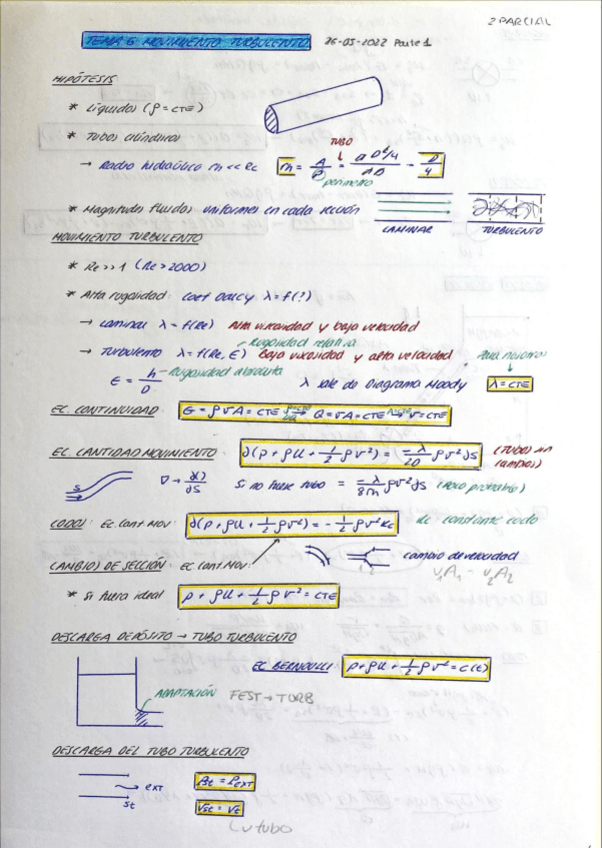 2 PARCIAL
TEMA 6: MOVIMIENTO TURBULENTO 26-05-2022 Parte 1
HIPÓTESIS
* Líquidos (ρ = CTE)
* Tubos cilíndricos
TUBO
→ Radio hidráulico m << Rc m = A/P = (πD²/4)/(πD) = D/4
perímetro
* Magnitudes fluidas uniformes en cada sección
LAMINAR TURBULENTO
MOVIMIENTO TURBULENTO
* Re >> 1 (Re > 2000)
* Alta rugosidad: Coef Darcy λ = f(?)
→ Laminar λ = f(Re) Alta viscosidad y baja velocidad
Rugosidad relativa
→ Turbulento λ = f(Re, Є) Baja viscosidad y alta velocidad Para nosotros
Є = h/D Rugosidad absoluta λ sale de Diagrama Moody λ = CTE
EC. CONTINUIDAD: G = ρvA = CTE ρ=CTE → Q = vA = CTE A=CTE → v = CTE
EC. CANTIDAD MOVIMIENTO: ∂(p + ρU + 1/2 ρv²) = -λ/2D ρv² ∂s (TUBOS
∇ → ∂()/∂s Si no fuese tubo = -λ/8m ρv² ∂s (poco probable)
CODOS: Ec. Cant. Mov: ∂(p + ρU + 1/2 ρv²) = -1/2 ρv² Kc Kc constante codo
CAMBIOS DE SECCIÓN: Ec. Cant. Mov: 1 2 cambio de velocidad
v₁A₁ - v₂A₂
* Si fuera ideal p + ρU + 1/2 ρv² = CTE
DESCARGA DEPÓSITO → TUBO TURBULENTO
EC BERNOULLI: p + ρU + 1/2 ρv² = C(t)
ADAPTACIÓN FEST → TURB
DESCARGA DEL TUBO TURBULENTO
EXT Pst = PEXT
St Vst = Vt
L vtubo